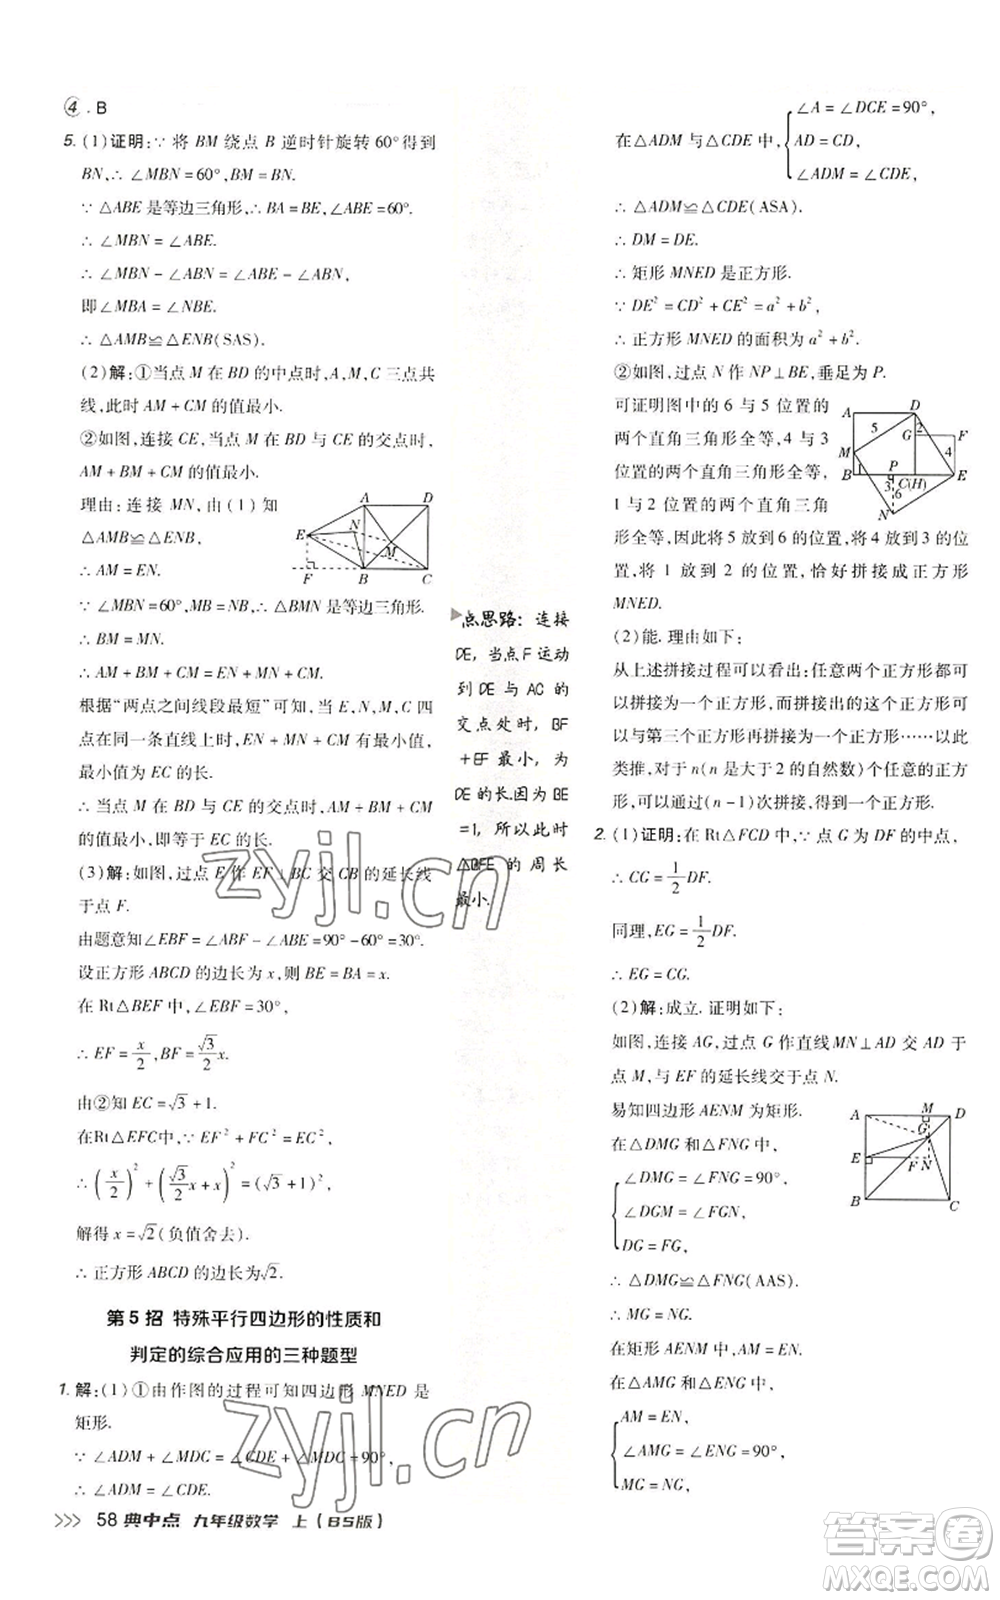 ④. B
5. (1)证明:∵ 将 BM 绕点 B 逆时针旋转 60°得到
BN,∴ ∠MBN = 60°,BM = BN.
∵ △ABE 是等边三角形,∴ BA = BE,∠ABE = 60°.
∴ ∠MBN = ∠ABE.
∴ ∠MBN − ∠ABN = ∠ABE − ∠ABN,
即∠MBA = ∠NBE.
∴ △AMB≌△ENB(SAS).
(2)解:①当点 M 在 BD 的中点时,A,M,C 三点共
线,此时 AM + CM 的值最小.
②如图,连接 CE,当点 M 在 BD 与 CE 的交点时,
AM + BM + CM 的值最小.
理由:连接 MN,由(1)知
△AMB≌△ENB,
∴ AM = EN.
A D E N M F B C
∵ ∠MBN = 60°,MB = NB,∴ △BMN 是等边三角形.
∴ BM = MN.
∴ AM + BM + CM = EN + MN + CM.
根据“两点之间线段最短”可知,当 E,N,M,C 四
点在同一条直线上时,EN + MN + CM 有最小值,
最小值为 EC 的长.
∴ 当点 M 在 BD 与 CE 的交点时,AM + BM + CM
的值最小,即等于 EC 的长.
(3)解:如图,过点 E 作 EF⊥BC 交 CB 的延长线
于点 F.
由题意知∠EBF = ∠ABF − ∠ABE = 90° − 60° = 30°.
设正方形 ABCD 的边长为 x,则 BE = BA = x.
在 Rt△BEF 中,∠EBF = 30°,
∴ EF = x/2,BF = √3/2 x.
由②知 EC = √3 + 1.
在Rt△EFC中,∵ EF² + FC² = EC²,
∴ (x/2)² + (√3/2 x + x)² = (√3 + 1)²,
解得 x = √2(负值舍去).
∴ 正方形 ABCD 的边长为√2.
第 5 招 特殊平行四边形的性质和
判定的综合应用的三种题型
1. 解:(1)①由作图的过程可知四边形 MNED 是
矩形.
∵ ∠ADM + ∠MDC = ∠CDE + ∠MDC = 90°,
∴ ∠ADM = ∠CDE.
点思路:连接
DE,当点F运动
到 DE 与 AC 的
交点处时,BF
+EF最小,为
DE的长.因为BE
=1,所以此时
△BFE 的 周 长
最小.
在△ADM 与△CDE 中,{∠A = ∠DCE = 90°,
AD = CD,
∠ADM = ∠CDE,
∴ △ADM≌△CDE(ASA).
∴ DM = DE.
∴ 矩形 MNED 是正方形.
∵ DE² = CD² + CE² = a² + b²,
∴ 正方形 MNED 的面积为 a² + b².
②如图,过点 N 作 NP⊥BE,垂足为 P.
可证明图中的 6 与 5 位置的
两个直角三角形全等,4 与 3
位置的两个直角三角形全等,
1 与 2 位置的两个直角三角
形全等,因此将 5 放到 6 的位置,将 4 放到 3 的位
置,将 1 放到 2 的位置,恰好拼接成正方形
MNED.
A D 5 2 G F M P 4 B 1 3 C(H) E 6 N
(2)能. 理由如下:
从上述拼接过程可以看出:任意两个正方形都可以
拼接为一个正方形,而拼接出的这个正方形可
以与第三个正方形再拼接为一个正方形……以此
类推,对于 n(n 是大于 2 的自然数)个任意的正方
形,可以通过(n − 1)次拼接,得到一个正方形.
2. (1)证明:在 Rt△FCD 中,∵ 点 G 为 DF 的中点,
∴ CG = 1/2 DF.
同理,EG = 1/2 DF.
∴ EG = CG.
(2)解:成立. 证明如下:
如图,连接 AG,过点 G 作直线 MN⊥AD 交 AD 于
点 M,与 EF 的延长线交于点 N.
易知四边形 AENM 为矩形.
在△DMG 和△FNG 中,
{∠DMG = ∠FNG = 90°,
∠DGM = ∠FGN,
DG = FG,
∴ △DMG≌△FNG(AAS).
∴ MG = NG.
A M D G E F N B C
在矩形 AENM 中,AM = EN.
在△AMG 和△ENG 中,
{AM = EN,
∠AMG = ∠ENG = 90°,
MG = NG,
>>> 58 典中点 九年级数学 上(BS版)
zyjl.cn
zyjl.cn
答案圈
MXQE.COM